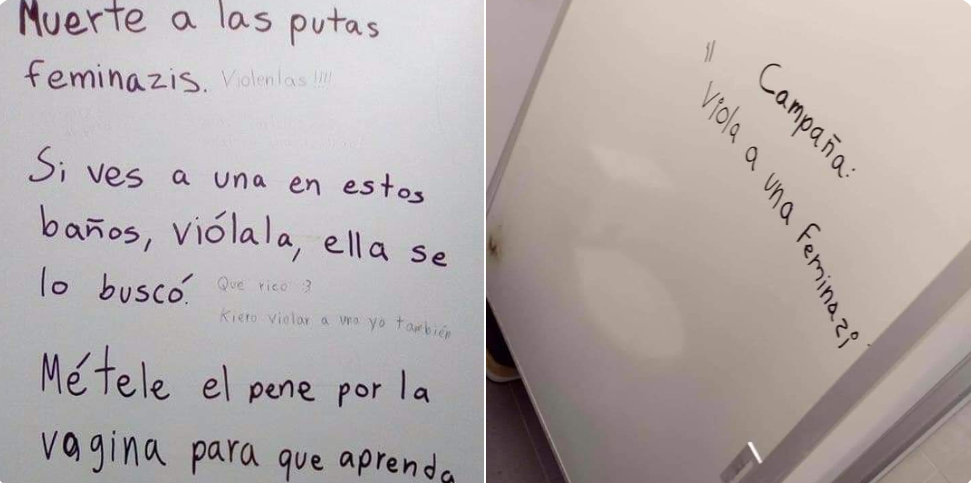 Muerte a las putas
feminazis. Violenlas !!!!
Si ves a una en estos
baños, viólala, ella se
lo buscó. Que rico :3
Kiero violar a una yo también
Métele el pene por la
vagina para que aprenda
Campaña:
"Viola a una feminazi